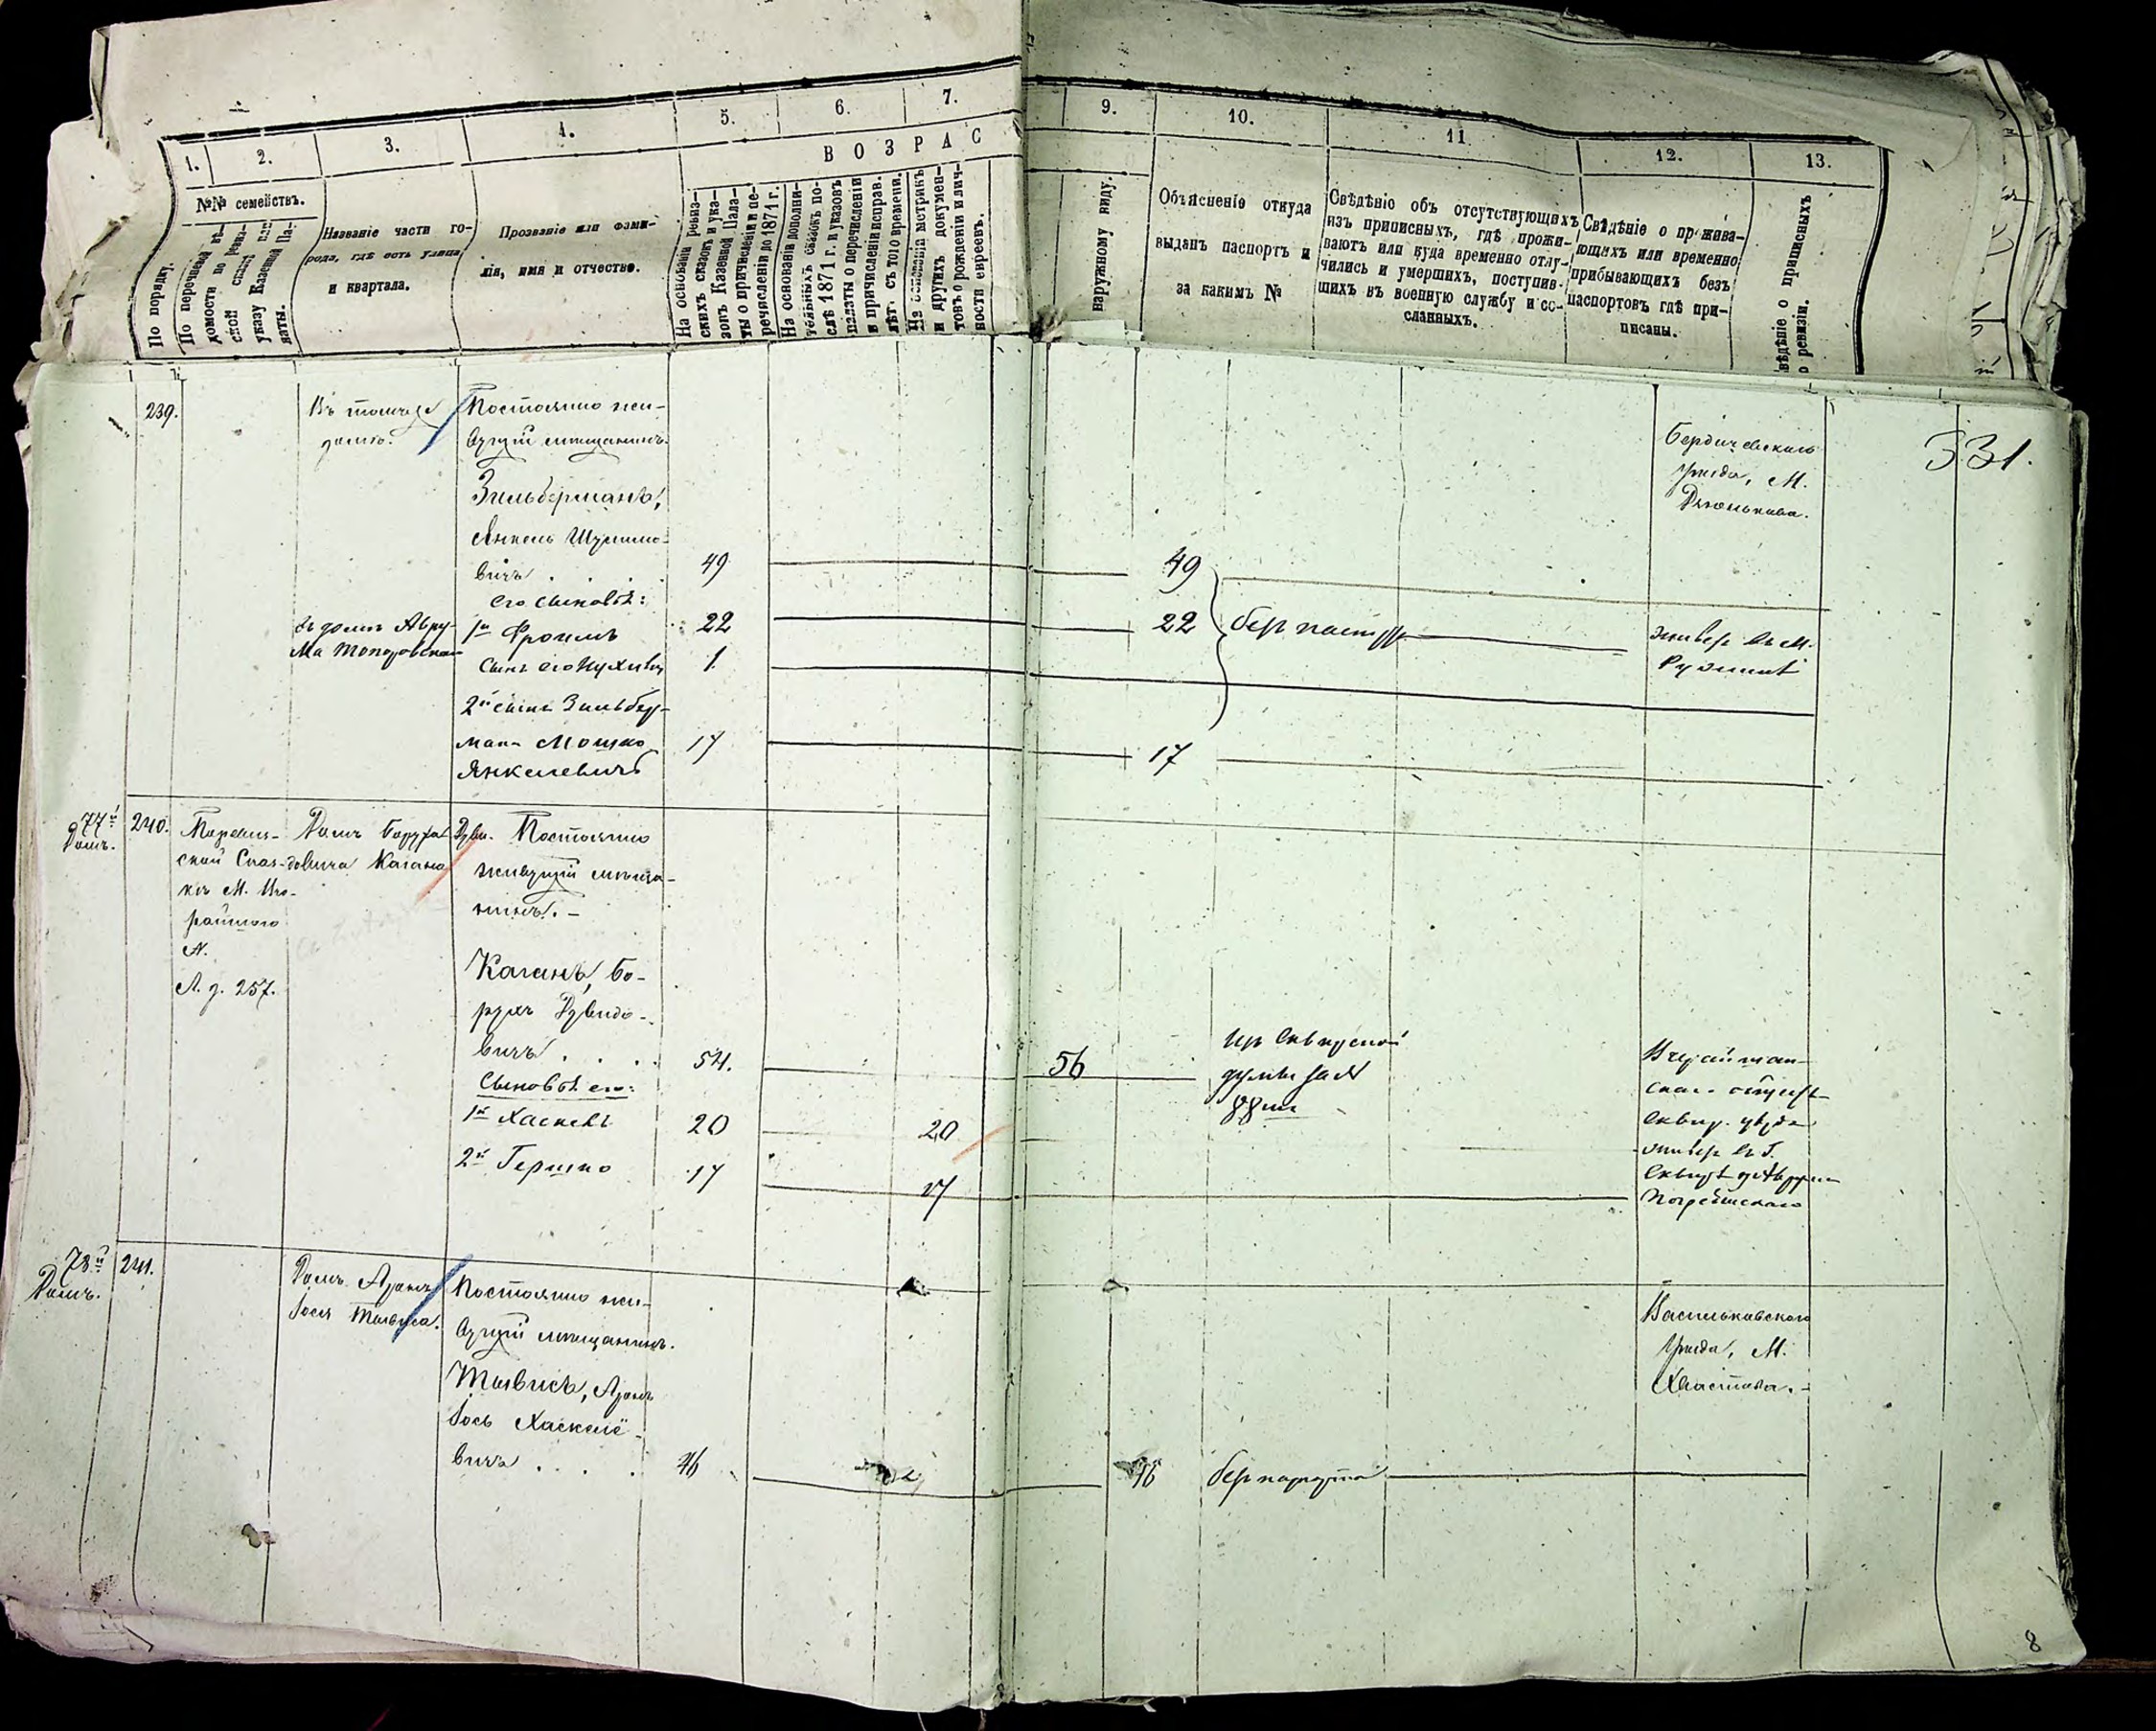 1.
2.
3.
4.
5.
6.
7.
9.
10.
11
12.
13.
В О З Р А С
№№ семействъ.
По порядку.
По перечневой вѣ-
домости по ревиз-
ской сказкѣ или
указу Казенной Па-
латы.
Названіе части го-
рода, гдѣ есть улица
и квартала.
Прозваніе или фами-
лія, имя и отчество.
На основаніи ревиз-
скихъ сказокъ и ука-
зовъ Казенной Пала-
ты о причисленіи и пе-
речисленіи до 1871 г.
На основаніи дополни-
тельныхъ сказокъ по-
слѣ 1871 г. и указовъ
палаты о перечисленіи
и причисленіи исправ.
лѣт. съ того времени.
На основаніи метрикъ
и другихъ докумен-
товъ о рожденіи и лич-
ности евреевъ.
наружному виду.
Объясненіе откуда
выданъ паспортъ и
за какимъ №
Свѣдѣніе объ отсутствующихъ
изъ приписныхъ, гдѣ прожи-
ваютъ или куда временно отлу-
чились и умершихъ, поступив-
шихъ въ военную службу и со-
сланныхъ.
Свѣдѣніе о прожива-
ющихъ или временно
прибывающихъ безъ
паспортовъ гдѣ при-
писаны.
вѣдѣніе о приписныхъ
о ревизіи.
331.
239.
Въ томъ же
домѣ.
Постоянно жи-
вущій мѣщанинъ.
Зильберманъ,
Янкель Шулимо-
вичъ . . . .
49
49
его сыновья:
въ домѣ Авру-
ма Топоровскаго
1й Фроимъ
22
22
сынъ его Нухимъ
1
2й сынъ Зильбер-
манъ Мошко
17
17
Янкелевичъ
без паспорт
Бердичевскаго
Уѣзда, М.
Дзюнькова.
живет въ М.
Ружинѣ
77й
Домъ.
240.
Паревиз-
ской Сказ-
кѣ М. Пло-
райшаго
№.
Л. д. 257.
Домъ Боруха Дув-
довича Кагана
Постоянно
живущій мѣща-
нинъ. -
Каганъ, Бо-
рухъ Дувидо-
вичъ . . . .
54.
56
Сыновья его:
1й Хаскель
20
20
2й Гершко
17
17
из Сквирской
думы за №
88
сквир. уѣзда
живет въ г.
Погребискаго
78й
Домъ.
241.
Домъ Арона
Іося Тывиса.
Постоянно жи-
вущій мѣщанинъ.
Тывисъ, Аронъ
Іось Хаскеле-
вичъ . . . .
46
46
без паспорта
Васильковскаго
Уѣзда, М.
Хвастова. -
8